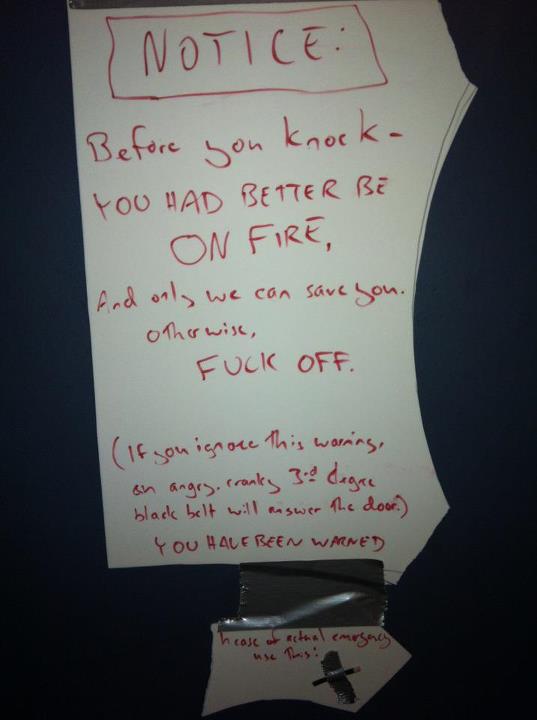 NOTICE:
Before you knock-
YOU HAD BETTER BE
ON FIRE,
And only we can save you.
otherwise,
FUCK OFF.
(If you ignore this warning,
an angry, cranky 3rd degree
black belt will answer the door.)
YOU HAVE BEEN WARNED
In case of actual emergency
use this: